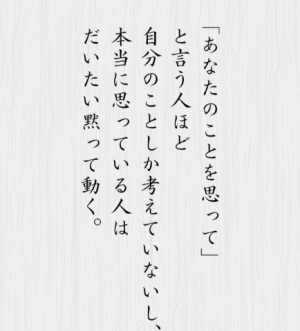 「あなたのことを思って」
と言う人ほど
自分のことしか考えていないし、
本当に思っている人は
だいたい黙って動く。